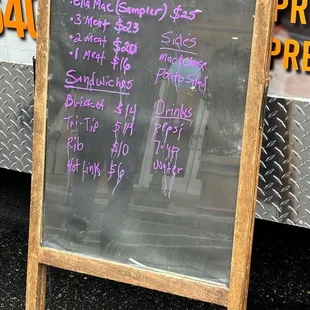 Ella Mae (Sampler) $25
• 3 Meat $23
• 2 Meat $20
• 1 Meat $16
Sides
Potato Salad
Sandwiches
Brisket $14
Tri-Tip $14
Rib $10
Hot Links $6
Drinks
Pepsi
7-up
Water
PR
PRE